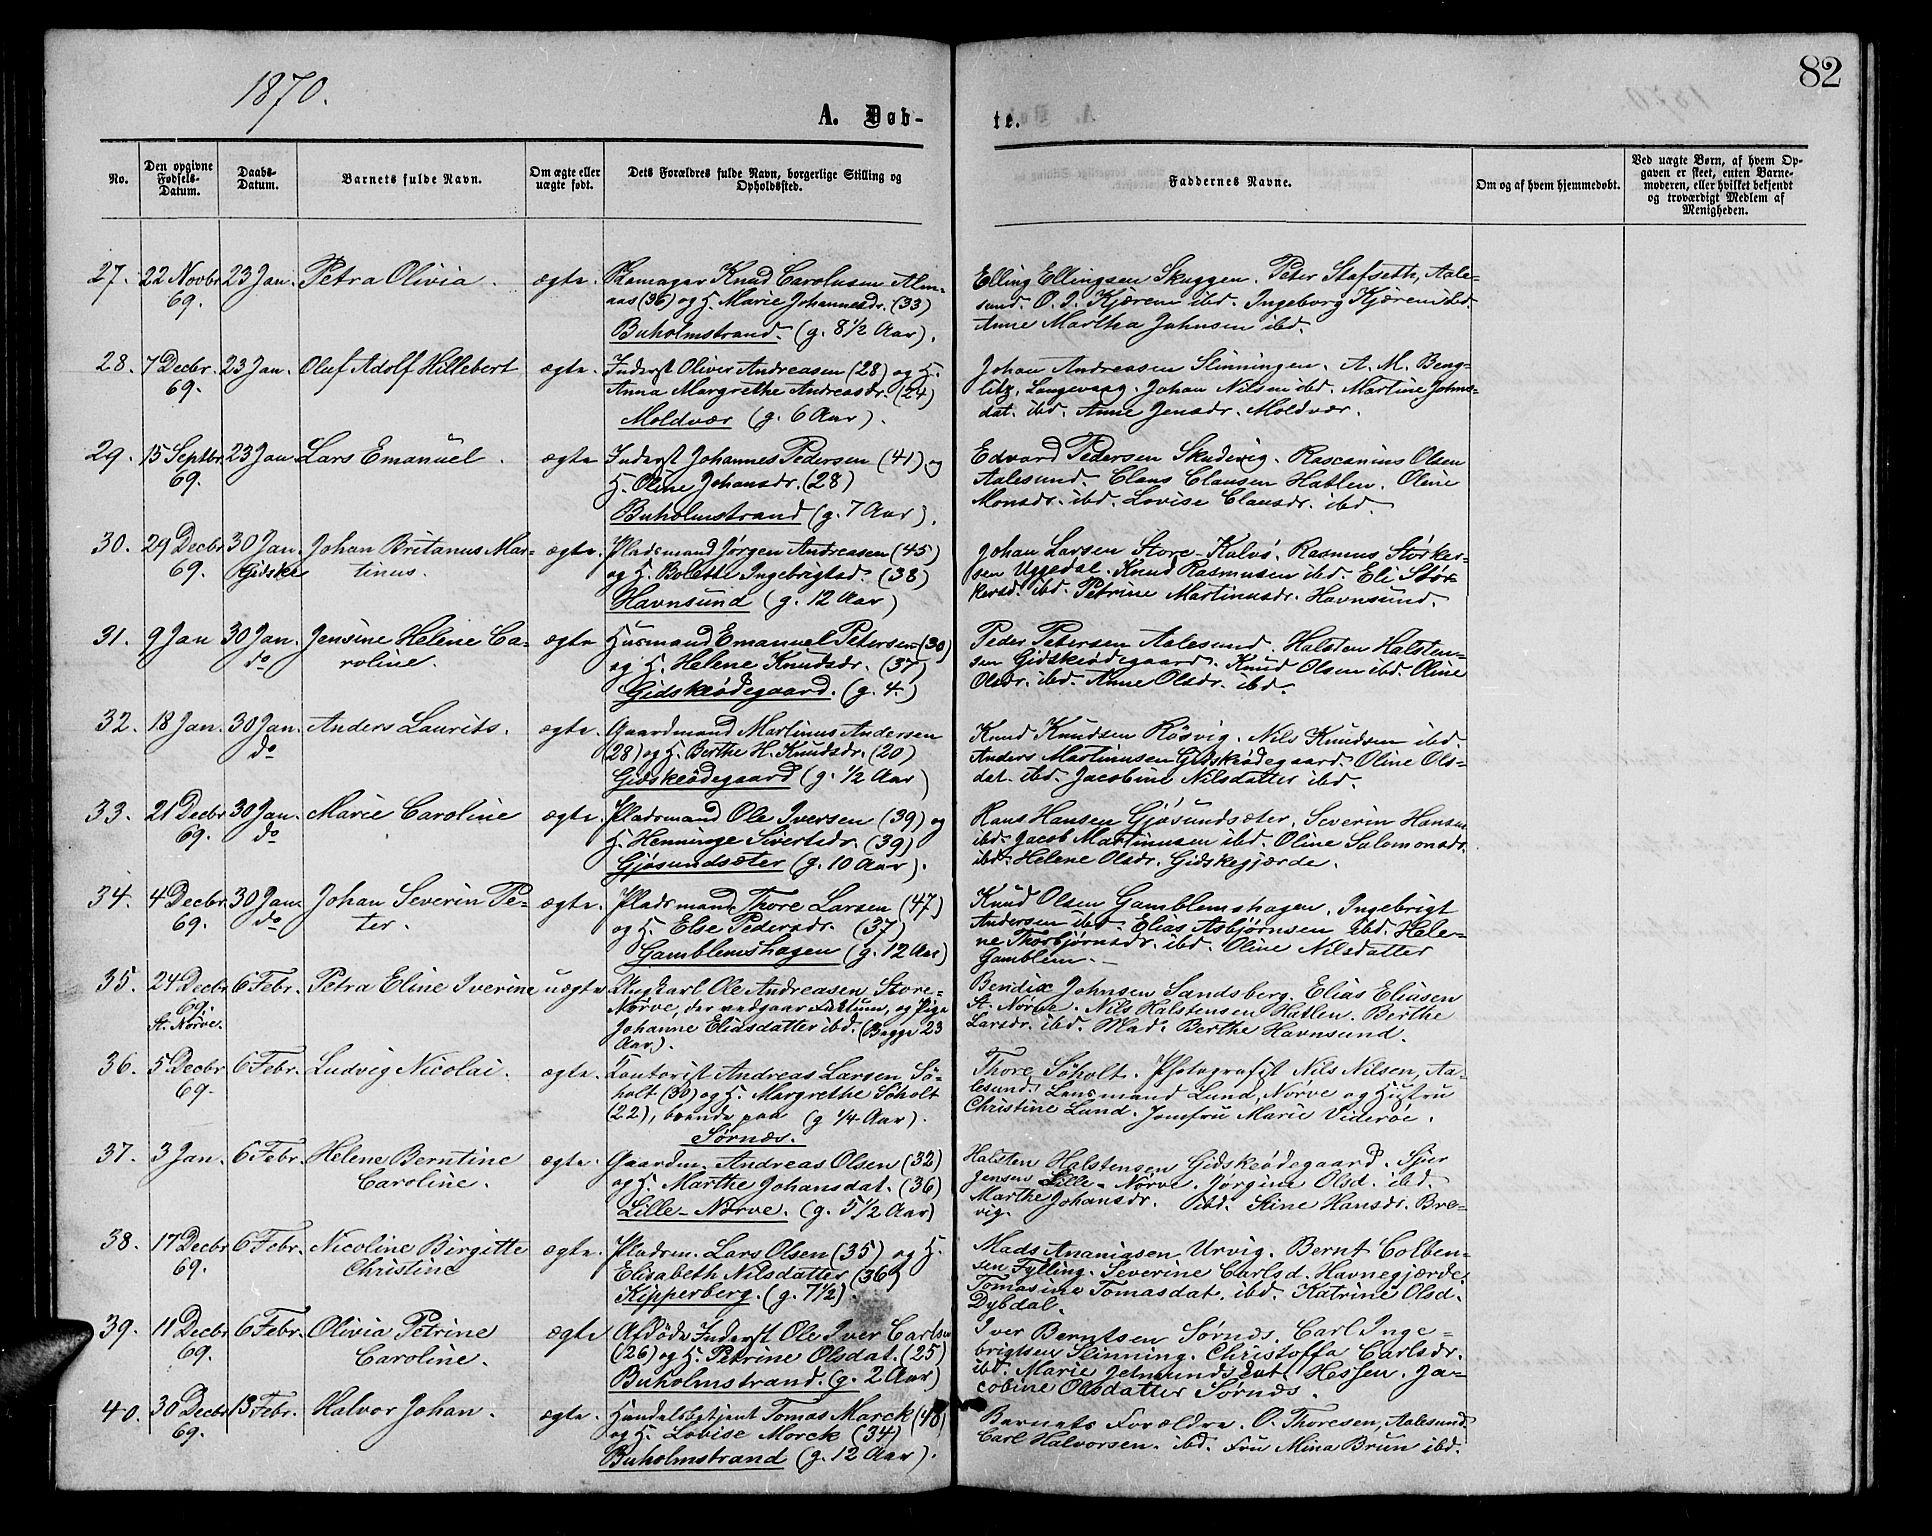 1870.
82
A. Døb-
te.
No.
Den opgivne Fødsels-Datum.
Daabs-Datum.
Barnets fulde Navn.
Om ægte eller uægte født.
Dets Forældres fulde Navn, borgerlige Stilling og Opholdssted.
Faddernes Navne.
Om og af hvem hjemmedøbt.
Ved uægte Børn, af hvem Opgaven er skeet, enten Barnemoderen, eller hvilket bekjendt og troværdigt Medlem af Menigheden.
27. 22 Novbr 23 Jan. Petra Olivia. ægte. Skomager Knud Carolusen Alm-
69. aas (36) og H. Marie Johannesdr. (33)
Buholmstrand. (g. 8½ Aar).
Elling Ellingsen Skuggen. Peter Stafseth, Aale-
sund. O. J. Kjærem ibd. Ingeborg Kjærem ibd.
Anne Martha Johnsen ibd.
28. 7 Decbr. 23 Jan. Oluf Adolf Hillebert ægte. Inderst Oliver Andreasen (28) og H.
69. Anna Margrethe Andreasdr. (24)
Moldvær (g. 6 Aar).
Johan Andreassen Slinningen. A. M. Beng-
litz, Langevaag. Johan Nilsen ibd. Martine Johns-
dat. ibd. Anne Jensdr. Moldvær.
29. 15 Septbr. 23 Jan. Lars Emanuel. ægte Inderst Johannes Pedersen (41) og
69. H. Oline Johansdr. (28)
Buholmstrand (g. 7 Aar).
Edvard Pedersen Skudevig. Rascanius Olsen
Aalesund. Claus Clausen Hatlen. Oline
Monsdr. ibd. Lovise Clausdr. ibd.
30. 29 Decbr 30 Jan. Johan Britanus Mar- ægte. Pladsmand Jørgen Andreasen (45)
69. Gidske tinus. og H. Bolette Ingebrigtsd. (38)
Havnsund (g. 12 Aar)
Johan Larsen Store-Kalvø. Rasmus Størker-
sen Uggedal. Knud Rasmussen ibd. Eli Stør-
kersd. ibd. Petrine Martinusdr. Havnsund.
31. 9 Jan 30 Jan. Jensine Helene Ca- ægte Husmand Emanuel Petersen (30)
do roline. og H. Helene Knudsdr. (37)
Gidskeødegaard. (g. 4.)
Peder Petersen Aalesund. Halsten Halsten-
sen Gidskeødegaard. Knud Olsen ibd. Oline
Olsdr. ibd. Anne Olsdr. ibd.
32. 18 Jan. 30 Jan. Anders Laurits. ægte. Gaardmand Martinus Andersen
do (28) og H. Berthe H. Knudsdr. (20)
Gidskeødegaard (g. ½ Aar)
Knud Knudsen Røsvig. Nils Knudsen ibd.
Anders Martinusen Gidskeødegaard. Oline Ols-
dat. ibd. Jacobine Nilsdatter ibd.
33. 21 Decbr 30 Jan. Marie Caroline ægte. Pladsmand Ole Iversen (39) og
69. do H. Henninge Sivertsdr. (39)
Gjøsundsæter (g. 10 Aar).
Hans Hansen Gjøsundsæter, Severin Hansen
ibd. Jacob Martinusen ibd. Oline Salomonsdr.
ibd. Helene Olsdr. Gidskegjærde.
34. 4 Decbr 30 Jan. Johan Severin Pe- ægte. Pladsmand Thore Larsen (47)
69. do ter. og H. Else Pedersdr. (37)
Gamblemshagen (g. 12 Aar)
Knud Olsen Gamblemshagen, Ingebrigt
Andersen ibd. Elias Asbjørnsen ibd. Hele-
ne Thorbjørnsdr. ibd. Oline Nilsdatter
Gamblem.
35. 24 Decbr 6 Febr. Petra Eline Iverine uægte. Ungkarl Ole Andreasen Store-
69. Nørve, der vedgaar Faktum, og Pige
St. Nørve. Johanne Eliasdatter ibd. (Begge 23
Aar).
Bendix Johnsen Sandsberg. Elias Eliasen
St. Nørve. Nils Halstensen Hatlen. Berthe
Larsdr. ibd. Mad: Berthe Havnsund.
36. 5 Decbr 6 Febr. Ludvig Nicolai. ægte. Kontorist Andreas Larsen Sø-
69. holt (30) og H. Margrethe Søholt
(22), boende paa (g ¼ Aar).
Sørnæs.
Thore Søholt. Photografist Nils Nilsen, Aa-
lesund. Lensmand Lund, Nørve og Hustru
Christine Lund. Jomfru Marie Viderøe.
37. 3 Jan. 6 Febr. Helene Berntine ægte. Gaardm. Andreas Olsen (32)
Caroline. og H. Marthe Johansdat. (36)
Lille-Nørve. (g. 5½ Aar)
Halsten Halstensen Gidskeødegaard. Sjur
Jensen Lille-Nørve. Jørgine Olsd. ibd.
Marthe Johansdr. ibd. Stine Hansdr. Bre-
vig.
38. 17 Decbr 6 Febr. Nicoline Birgitte ægte. Pladsm. Lars Olsen (35) og H.
69. Christine Elisabeth Nilsdatter (36)
Kipperberg. (g. 7½)
Mads Ananiasen Urvig. Bernt Colben-
sen Fylling. Severine Carlsd. Havnegjærde.
Tomasine Tomasdat. ibd. Katrine Olsd.
Dybdal.
39. 11 Decbr 6 Febr. Olivia Petrine ægte Afdøde Inderst Ole Iver Carlsen
69. Caroline. (26) og H. Petrine Olsdat. (25)
Buholmstrand. (g. 2 Aar)
Iver Berntsen Sørnæs. Carl Inge-
brigtsen Slinning. Christoffa Carlsdr.
ibd. Marie Jetmundsdat Hessen. Ja-
cobine Olsdatter Sørnæs.
40. 30 Decbr 13 Febr. Halvor Johan. ægte. Handelsbetjent Tomas Marck (48)
69. og H. Lovise Morck (34)
Buholmstrand (g. 12 Aar).
Barnets Forældre. O. Thoresen, Aalesund.
Carl Halvorsen. ibd. Fru Mina Brun ibd.